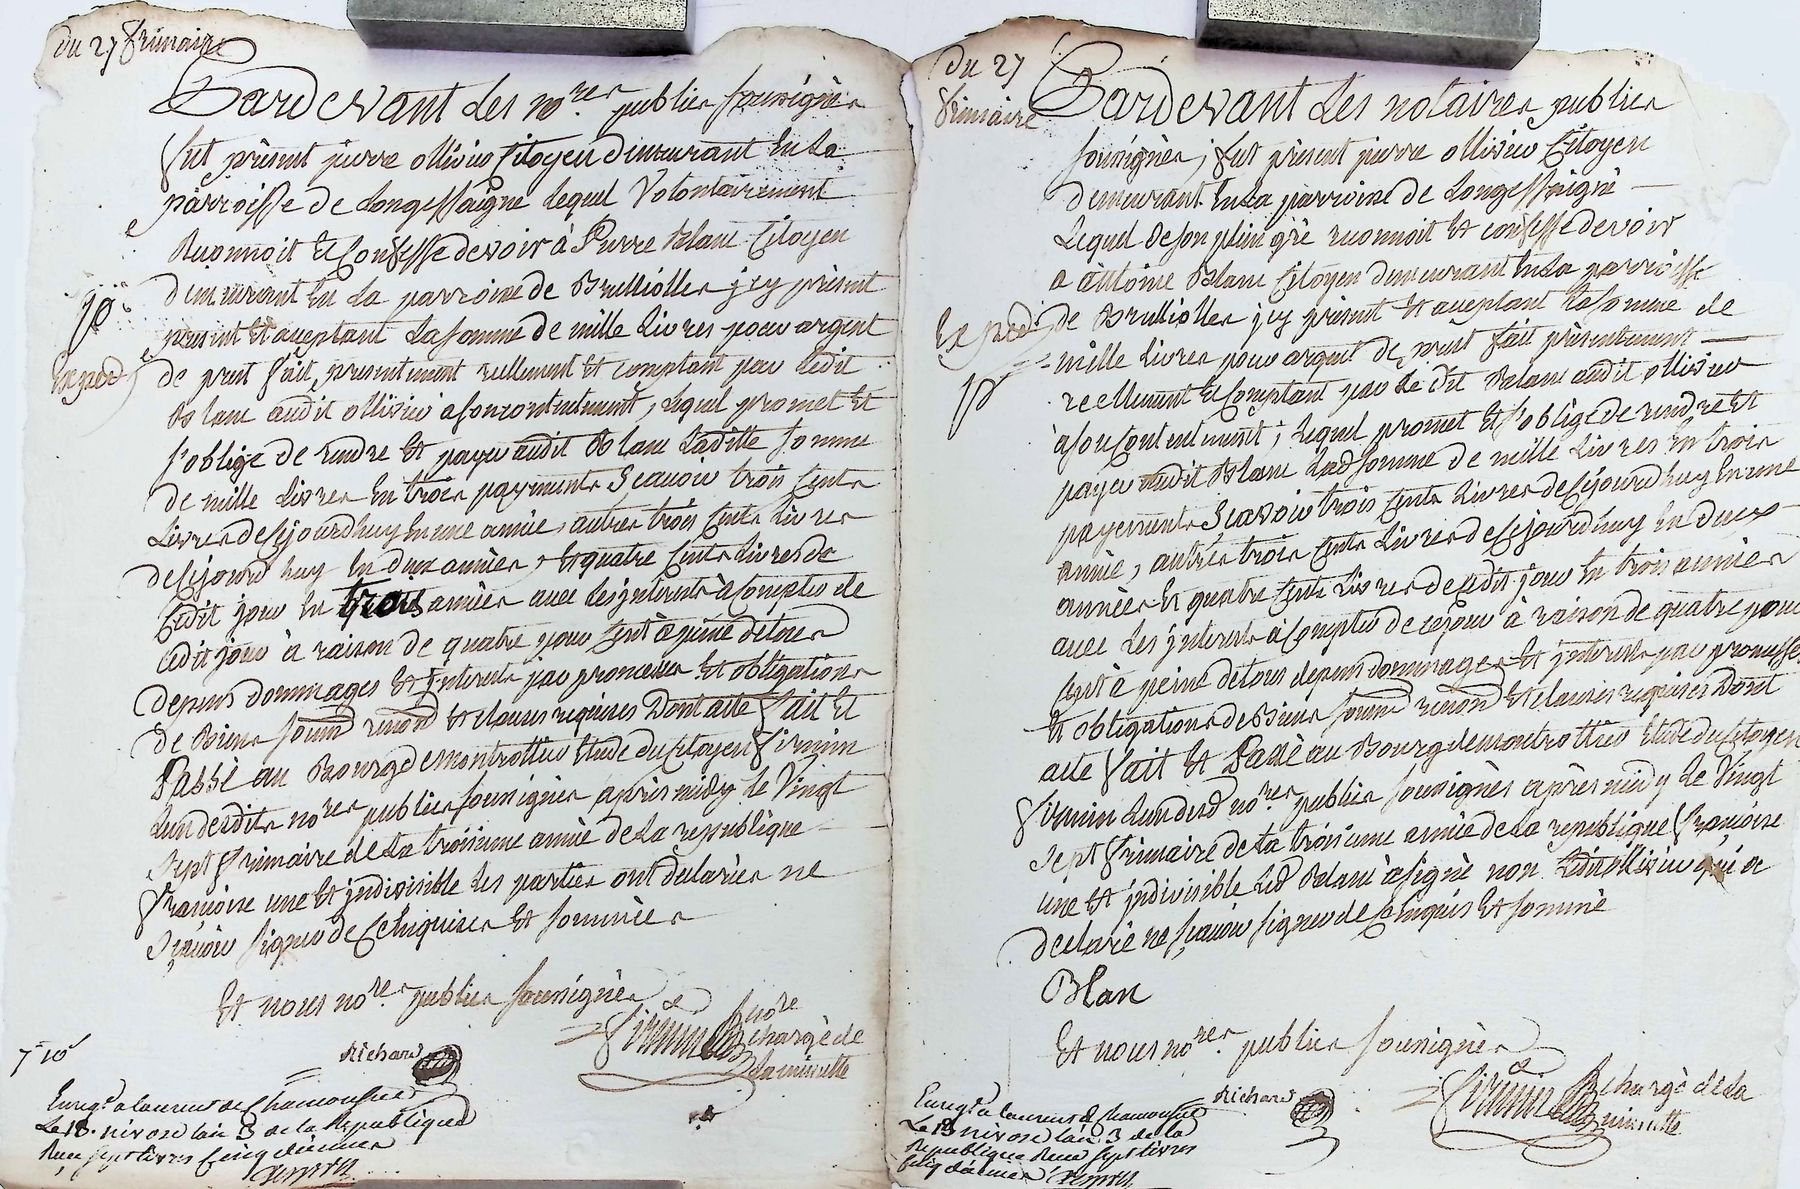 du 27 frimaire
Pardevant Les no.res publics soussignés
fut présent pierre ollivier Citoyen demeurant En La
parroisse de Longessaigne Lequel Volontairement
Reconnoit Et Confesse devoir à Pierre Blanc Citoyen
demeurant En La parroisse de Brullioles jcy présent
présent Et aceptant La somme de mille Livres pour argent
de pret fait présentement réellement Et comptant par Ledit
Blanc audit ollivier a son contentement, Lequel promet Et
s'oblige de rendre Et payer audit Blanc Laditte somme
de mille Livres En trois payements Scavoir trois Cents
Livres de Cejourdhuy En une année, autres trois Cents Livres
de Cejourdhuy En deux années, Et quatre Cents Livres de
Cedit jour En trois années avec Les jnterets à Compter de
cedit jour à raison de quatre pour Cent à peine de tous
depens dommages Et jnterets par promesses Et obligations
de Biens soumd renond Et clauses requises Dont acte fait Et
Passé au Bourg de montrottier Etude du Citoyen firmin
L'un desdits no.res publics soussignés après midy Le Vingt
Sept frimaire de La troisieme année de La republique
françoise une Et jndivisible Les parties ont déclarées ne
Sçavoir signer de Ce Enquises Et sommées
Et nous no.res publics soussignés
Exped
Richard
firmin
no.re
chargé de
La minutte
7# 10s
Enreg.é a laurent de Chamousset
Le 18 nivose lan 3 de la Republique
Reçu sept livres Cinq décimes
du 27
frimaire
Pardevant Les notaires publics
soussignés, fut présent pierre ollivier Citoyen
demeurant En La parroisse de Longessaigne
Lequel de son plein gré reconnoit Et confesse devoir
a antoine Blanc Citoyen demeurant En La parroisse
de Brullioles jcy présent Et aceptant La somme de
mille Livres pour argent de prest fait présentement
reellement Et Comptant par Le dit Blanc audit ollivier
à son Contentement, Lequel promet Et s'oblige de rendre Et
payer audit Blanc Lad somme de mille Livres En trois
payements Sçavoir trois Cents Livres de Cejourdhuy En une
année, autres trois Cents Livres de Cejourdhuy En deux
années Et quatre Cents Livres de Cedit jour En trois années
avec Les jnterets à Compter de ce jour à raison de quatre pour
Cent à peine de tous depens dommages Et jnterets par promesses
Et obligations de Biens soumd renond Et clauses requises Dont
acte fait Et Passé au Bourg de montrottier Etude du Citoyen
firmin L'un desd no.res publics soussignés après midy Le Vingt
Sept frimaire de La troisieme année de La republique françoise
une Et jndivisible Led Blanc à signé non Ledit ollivier qui a
declaré ne sçavoir signer de Ce Enquis Et sommé
Blan
Et nous no.res publics soussignés
Expéd
Richard
firmin
chargé de La
minutte
Enreg.é a laurent d Chamousset
Le 18 nivose lan 3 de la
Republique Reçu sept livres
Cinq décimes